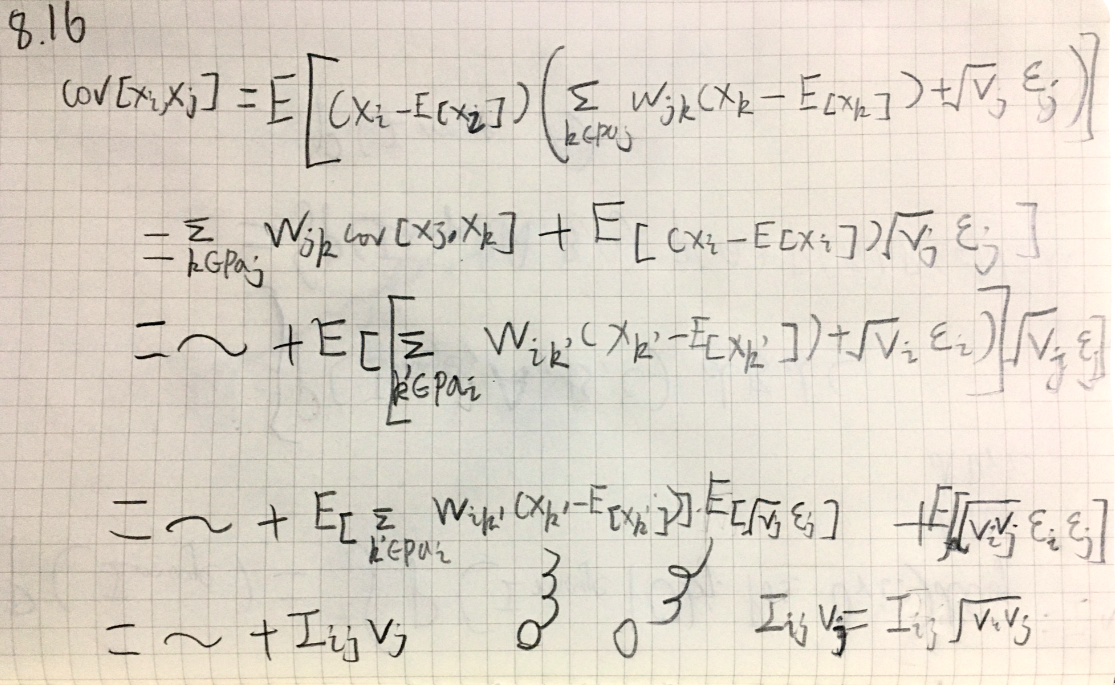 8.16
cov[xi,xj] = E[(xi-E[xi])(Σ k∈paj wjk(xk-E[xk])+√vj εj)]
= Σ k∈paj wjk cov[xj,xk] + E[(xi-E[xi])√vj εj]
= ~ + E[[Σ k'∈pai wik'(xk'-E[xk'])+√vi εi)]√vj εj]
= ~ + E[Σ k'∈pai wik'(xk'-E[xk'])]·E[√vj εj] +E[√vivj εi εj]
= ~ + Iij vj 0 0 Iij vj = Iij √vivj